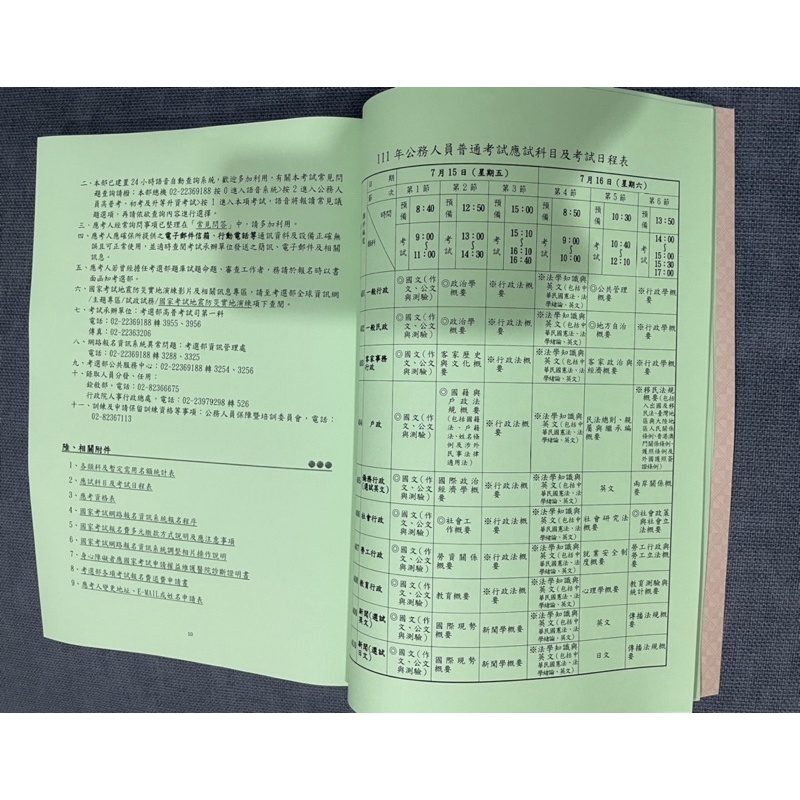 二、本部已建置 24 小時語音自動查詢系統，歡迎多加利用。有關本考試常見問
題查詢請撥：本部總機 02-22369188 按 0 進入語音系統>按 2 進入公務人
員高普考、初考及升等升資考試>按 1 進入本項考試，語音將報讀常見議
題選項，再請依欲查詢內容進行選擇。
三、應考人經常詢問事項已整理在「常見問答」中，請多加利用。
四、應考人應確保所提供之電子郵件信箱、行動電話等通訊資料及設備正確無
誤且可正常使用，並適時查閱考試承辦單位發送之簡訊、電子郵件及相關
訊息。
五、應考人若曾經擔任考選部題庫試題命題、審查工作者，務請於報名時以書
面函知考選部。
六、國家考試地震防災實地演練影片及相關訊息專區，請至考選部全球資訊網
/主題專區/試政試務/國家考試地震防災實地演練項下查閱。
七、考試承辦單位：考選部高普考試司第一科
電話：02-22369188 轉 3955、3956
傳真：02-22363206
八、網路報名資訊系統異常問題：考選部資訊管理處
電話：02-22369188 轉 3288、3325
九、考選部公共服務中心：02-22369188 轉 3254、3256
十、錄取人員分發、任用：
銓敘部，電話：02-82366675
行政院人事行政總處，電話：02-23979298 轉 526
十一、訓練及申請保留訓練資格等事項：公務人員保障暨培訓委員會，電話：
02-82367113
陸、相關附件
1、各類科及暫定需用名額統計表
2、應試科目及考試日程表
3、應考資格表
4、國家考試網路報名資訊系統報名程序
5、國家考試報名費多元繳款方式說明及應注意事項
6、國家考試網路報名資訊系統調整相片操作說明
7、身心障礙者應國家考試申請權益維護醫院診斷證明書
8、考選部各項考試報名費退費申請書
9、應考人變更地址、E-MAIL或姓名申請表
10
111 年公務人員普通考試應試科目及考試日程表
日期 7月15日（星期五） 7月16日（星期六）
節次 第1節 第2節 第3節 第4節 第5節 第6節
時間 預備 8:40 預備 12:50 預備 15:00 預備 8:50 預備 10:30 預備 13:50
類科 考試 9:00〜11:00 考試 13:00〜14:30 考試 15:10〜16:10 16:40 考試 9:00〜10:00 考試 10:40〜12:10 考試 14:00〜15:00 15:30 17:00
401 一般行政 ◎國文(作文、公文與測驗) ◎政治學概要 ※行政法概要 ※法學知識與英文(包括中華民國憲法、法學緒論、英文) ◎公共管理概要 ※行政學概要
402 一般民政 ◎國文(作文、公文與測驗) ◎政治學概要 ※行政法概要 ※法學知識與英文(包括中華民國憲法、法學緒論、英文) ◎地方自治概要 ※行政學概要
403 客家事務行政 ◎國文(作文、公文與測驗) 客家歷史與文化概要 ※行政法概要 ※法學知識與英文(包括中華民國憲法、法學緒論、英文) 客家政治與經濟概要 ※行政學概要
404 戶政 ◎國文(作文、公文與測驗) ◎國籍與戶政法規概要(包括國籍法、戶籍法、姓名條例及涉外民事法律適用法) ※行政法概要 ※法學知識與英文(包括中華民國憲法、法學緒論、英文) 民法總則、親屬與繼承編概要 ※移民法規概要(包括入出國及移民法、臺灣地區與大陸地區人民關係條例、香港澳門關係條例、護照條例及外國護照簽證條例)
405 僑務行政(選試英文) ◎國文(作文、公文與測驗) 國際政治經濟學概要 ※行政法概要 ※法學知識與英文(包括中華民國憲法、法學緒論、英文) 英文 兩岸關係概要
406 社會行政 ◎國文(作文、公文與測驗) ◎社會工作概要 ※行政法概要 ※法學知識與英文(包括中華民國憲法、法學緒論、英文) 社會研究法概要 ◎社會政策與社會立法概要
407 勞工行政 ◎國文(作文、公文與測驗) 勞資關係概要 ※行政法概要 ※法學知識與英文(包括中華民國憲法、法學緒論、英文) 就業安全制度概要 勞工行政與勞工立法概要
408 教育行政 ◎國文(作文、公文與測驗) 教育概要 ※行政法概要 ※法學知識與英文(包括中華民國憲法、法學緒論、英文) 心理學概要 教育測驗與統計概要
409 新聞(選試英文) ◎國文(作文、公文與測驗) 國際現勢概要 新聞學概要 ※法學知識與英文(包括中華民國憲法、法學緒論、英文) 英文 傳播法規概要
410 新聞(選試日文) ◎國文(作文、公文與測驗) 國際現勢概要 新聞學概要 ※法學知識與英文(包括中華民國憲法、法學緒論、英文) 日文 傳播法規概要